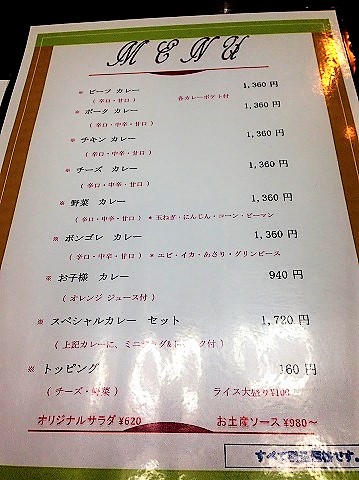 MENU
※ ビーフ カレー 1,360 円
（ 辛口・甘口 ） 各カレーポテト付
※ ポーク カレー 1,360 円
（ 辛口・中辛・甘口 ）
※ チキン カレー 1,360 円
（ 辛口・中辛・甘口 ）
※ チーズ カレー 1,360 円
（ 辛口・中辛・甘口 ）
※ 野菜 カレー 1,360 円
（ 辛口・中辛・甘口 ） * 玉ねぎ・にんじん・コーン・ピーマン
※ ボンゴレ カレー 1,360 円
（ 辛口・中辛・甘口 ） * エビ・イカ・あさり・グリンピース
※ お子様 カレー 940 円
（ オレンジ ジュース付 ）
※ スペシャルカレー セット 1,720 円
（ 上記カレーに、ミニサラダ&ドリンク付 ）
※ トッピング 160 円
（ チーズ・野菜 ） ライス大盛り¥100
オリジナルサラダ ¥620 お土産ソース ¥980～
すべて
です。